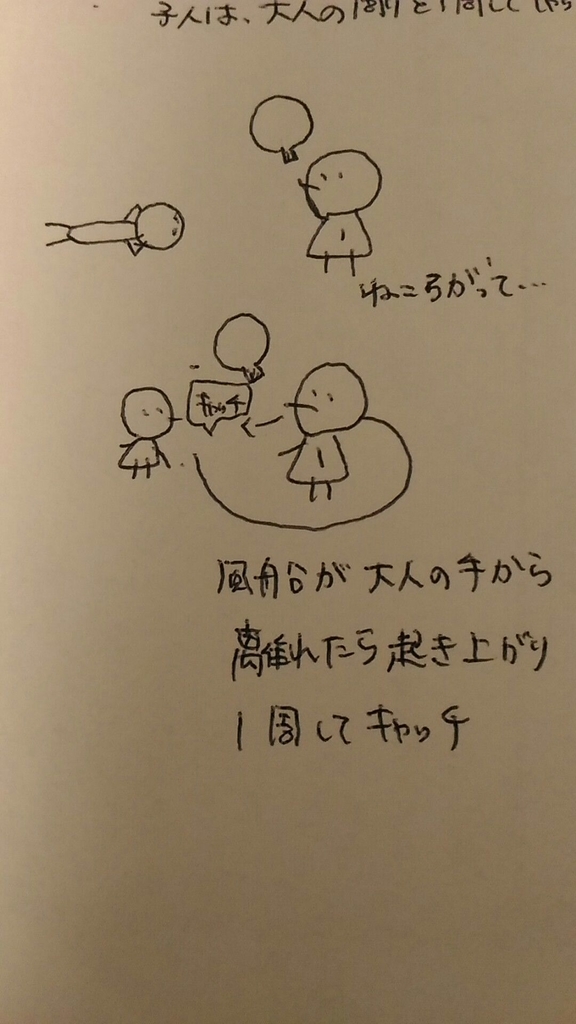 大人の周りを1周して
ねころがって…
キャッチ
風船が大人の手から
離れたら起き上がり
1周してキャッチ